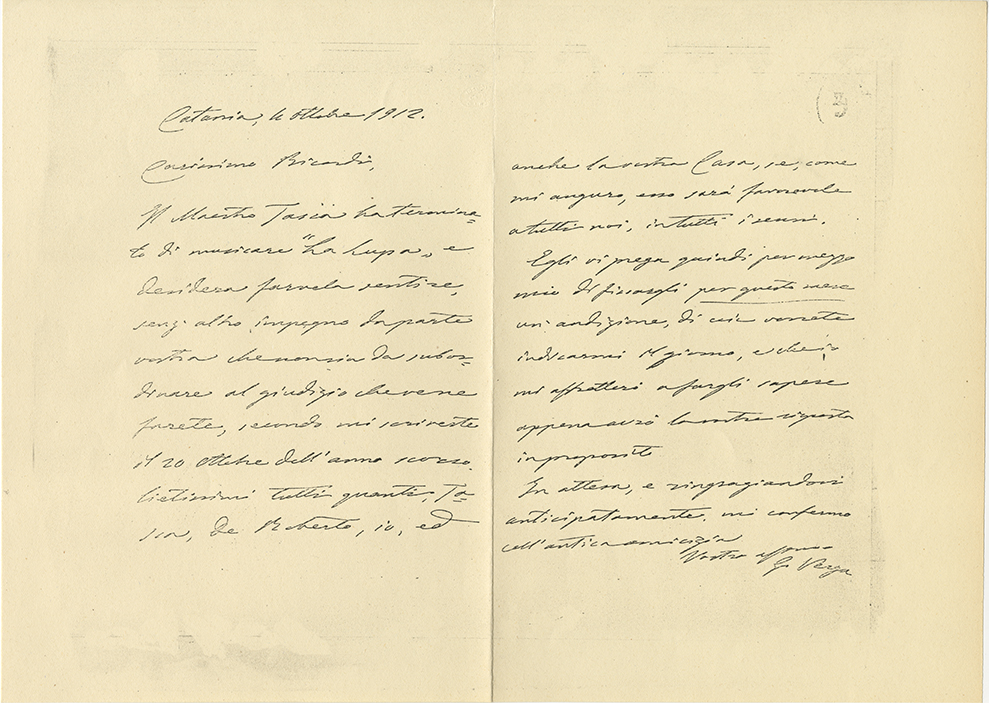 Catania, 4 Ottobre 1912.
Carissimo Ricordi,
Il Maestro Tasca ha termina=
to di musicare "La Lupa", e
desidera farvela sentire,
senz'altro impegno da parte
vostra che non sia da subor=
dinare al giudizio che vene
farete, secondo mi scriveste
il 20 Ottobre dell'anno scorso.
lietissimi tutti quanti, Ta=
sca, De Roberto, io, ed
anche la vostra Casa, se, come
mi auguro, esso sarà favorevole
a tutti noi, in tutti i sensi.
Egli vi prega quindi per mezzo
mio di fissargli per questo mese
un'audizione, di cui vorrete
indicarmi il giorno, e che io
mi affretterò a fargli sapere
appena avrò la vostra risposta
in proposito
In attesa, e ringraziandovi
anticipatamente, mi confermo
coll'antica amicizia
Vostro affmo
G. Verga